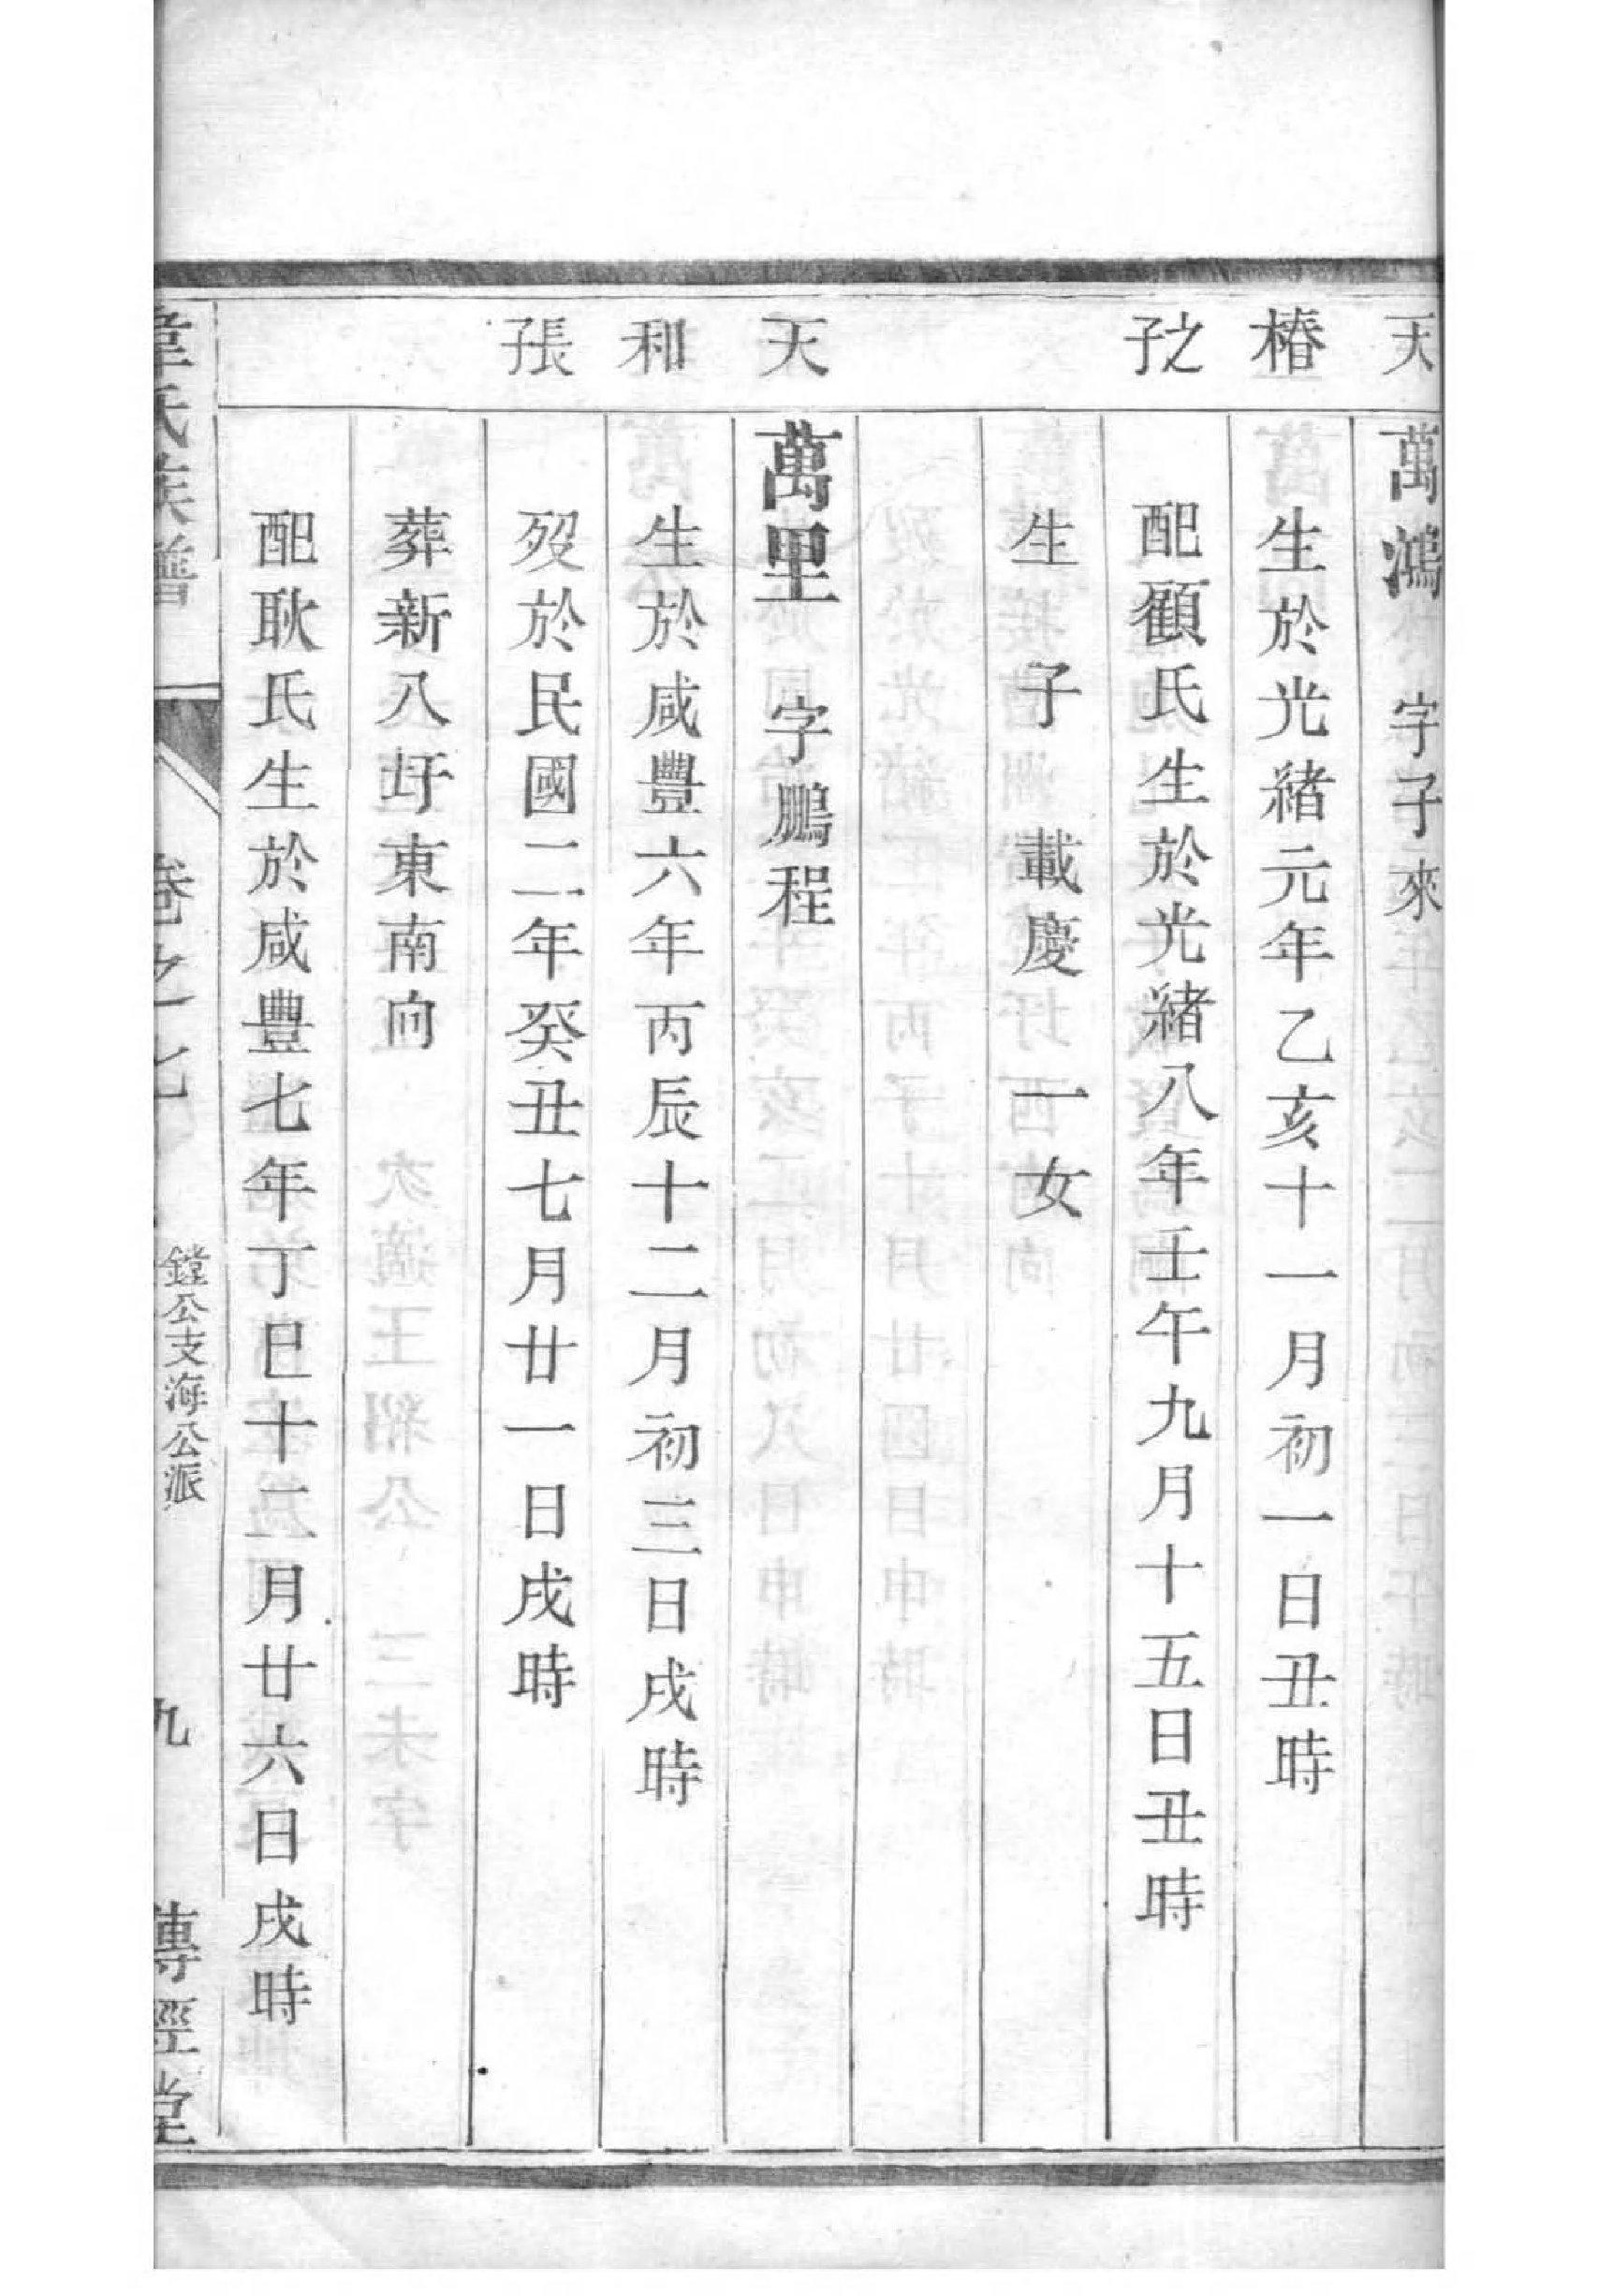 天
椿
之子
天
和
長子
萬鴻 字子來
生於光緒元年乙亥十一月初一日丑時
配顧氏生於光緒八年壬午九月十五日丑時
生 子 載慶 一女
萬里 字鵬程
生於咸豐六年丙辰十二月初三日戌時
歿於民國二年癸丑七月廿一日戌時
葬新八圩東南向
配耿氏生於咸豐七年丁巳十二月廿六日戌時
韋氏族譜
卷之七
鏜公支海公派
九
傳經堂